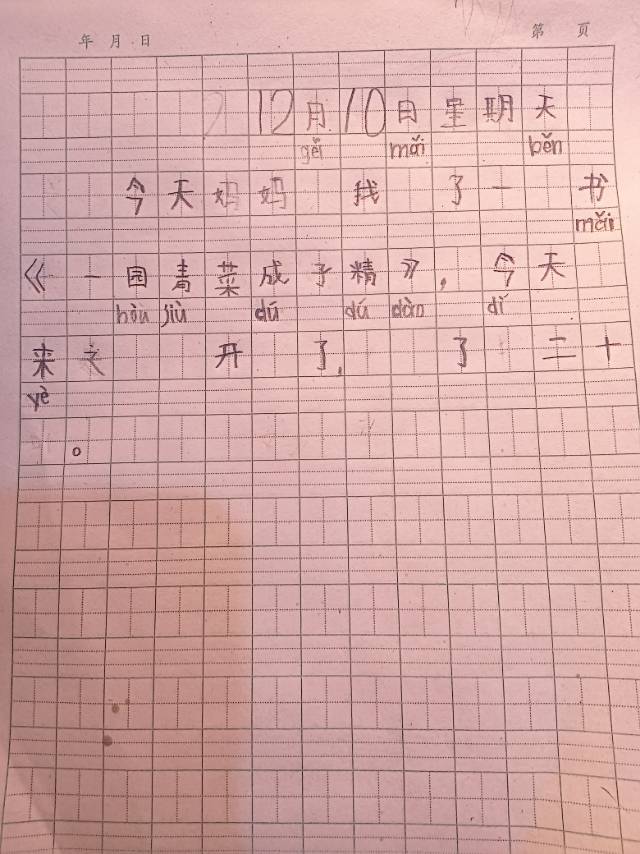 年 月 日 第 页
12月10日星期天
gěi mǎi běn
今天妈妈 我 了一 书
mǎi
《一园青菜成了精》,今天
hòu jiù dú dú dào dǐ
来之 开 了, 了 二十
yè
。